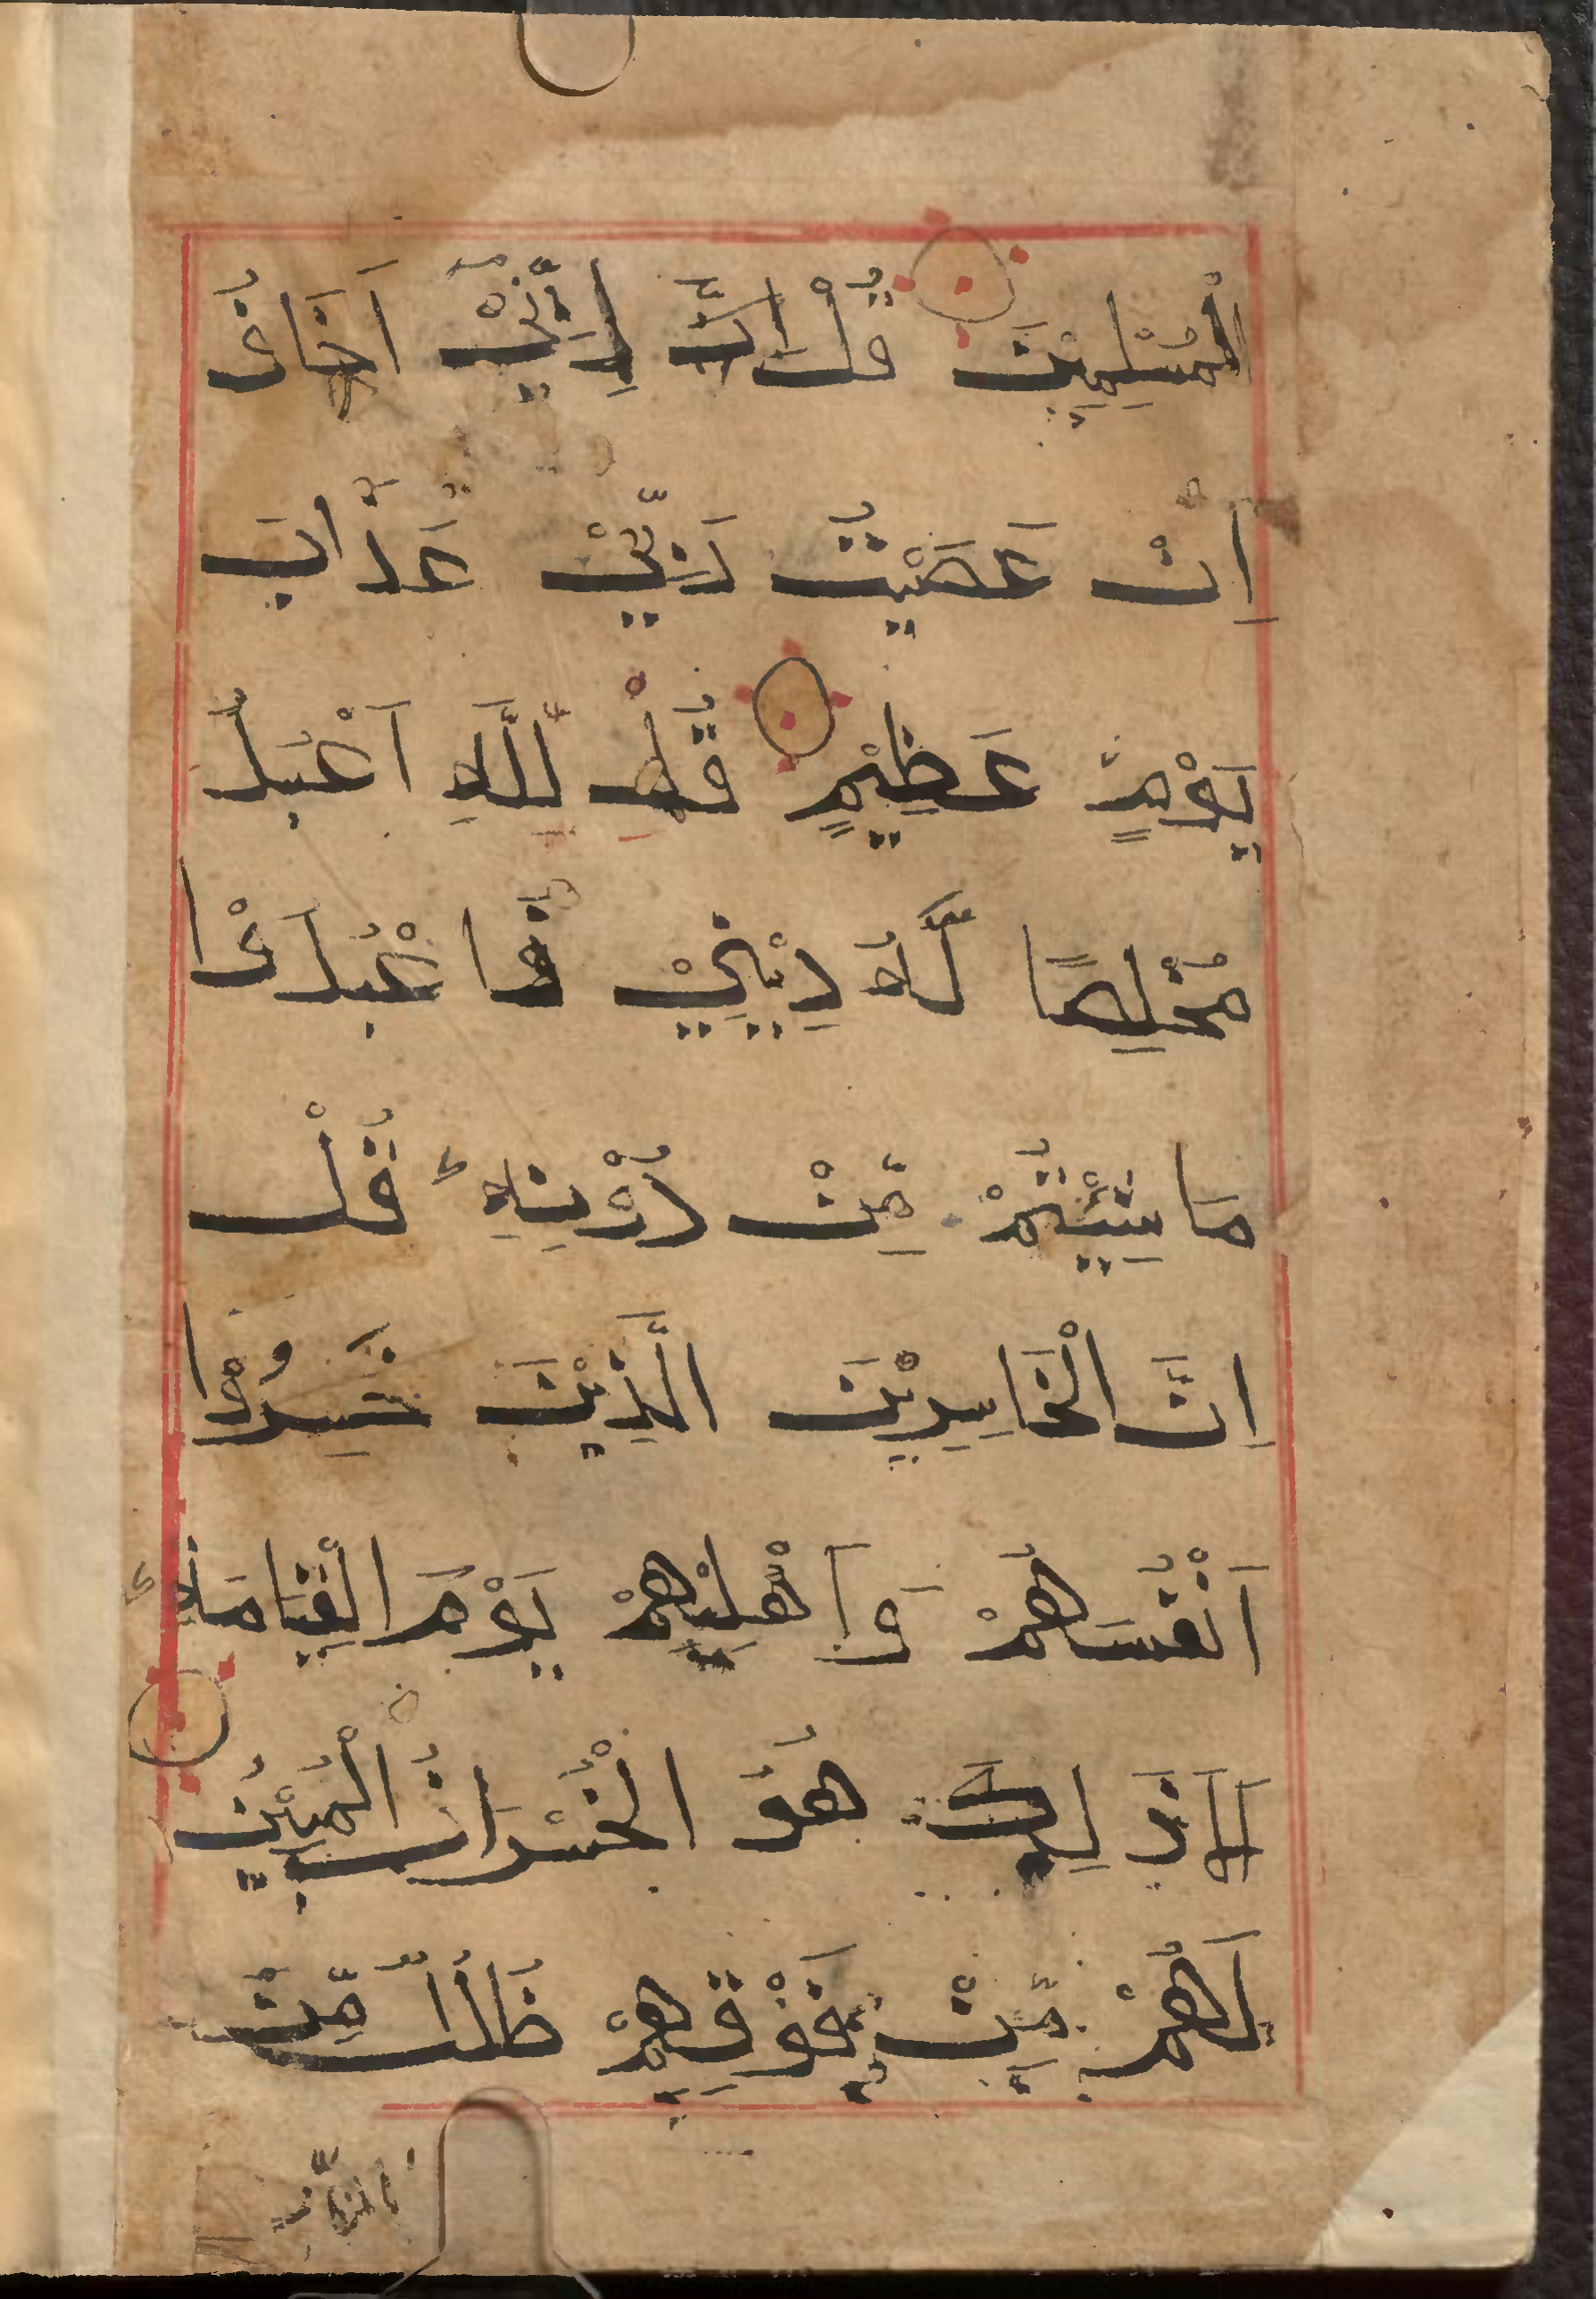 الْمُسْلِمِيْنَ قُلْ اِنِّيْ اَخَافُ
اِنْ عَصَيْتُ رَبِّيْ عَذَابَ
يَوْمٍ عَظِيْمٍ قُلِ اللّٰهَ اَعْبُدُ
مُخْلِصًا لَّهُ دِيْنِيْ فَاعْبُدُوْا
مَا شِيْتُمْ مِّنْ دُوْنِهِ قُلْ
اِنَّ الْخَاسِرِيْنَ الَّذِيْنَ خَسِرُوْا
اَنْفُسَهُمْ وَاَهْلِيْهِمْ يَوْمَ الْقِيَامَةِ
اَلَا ذٰلِكَ هُوَ الْخُسْرَانُ الْمُبِيْنُ
لَهُمْ مِّنْ فَوْقِهِمْ ظُلَلٌ مِّنَ
النَّارِ